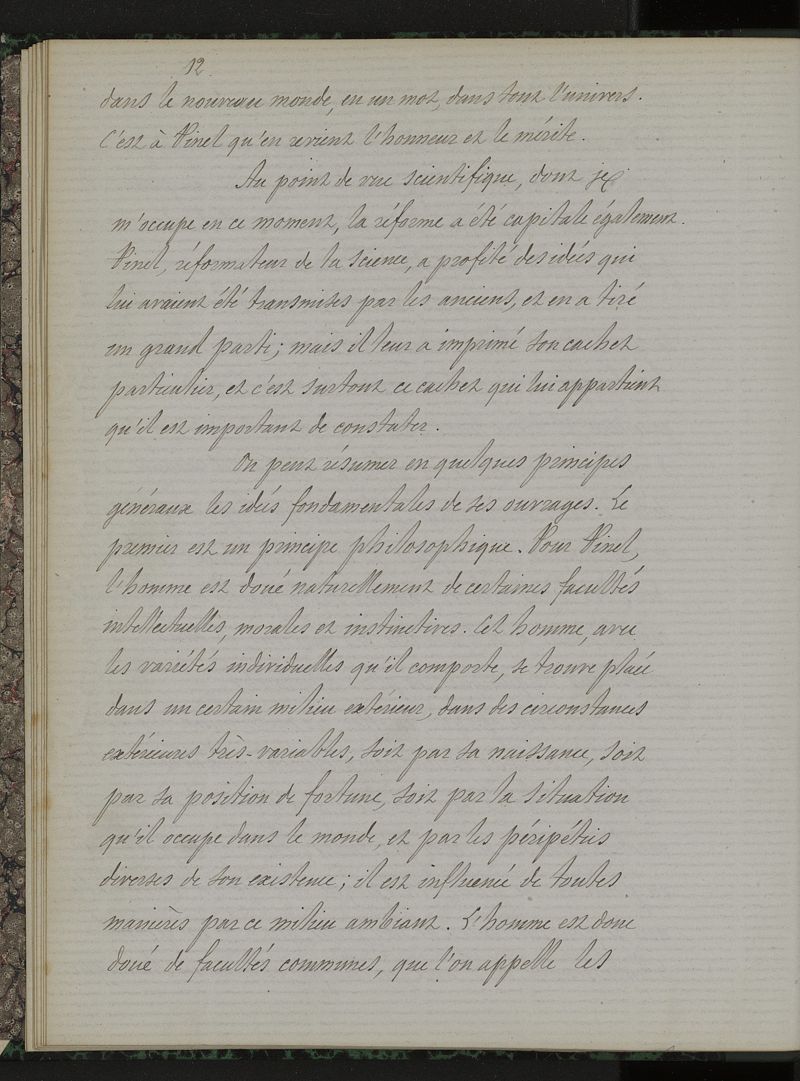 12
dans le nouveau monde, en un mot, dans tout l'univers.
C'est à Pinel qu'en revient l'honneur et le mérite.
Au point de vue scientifique, dont je
m'occupe en ce moment, la réforme a été capitale également.
Pinel, réformateur de la science, a profité des idées qui
lui avaient été transmises par les anciens, et en a tiré
un grand parti; mais il leur a imprimé son cachet
particulier, et c'est surtout ce cachet qui lui appartient
qu'il est important de constater.
On peut résumer en quelques principes
généraux les idées fondamentales de ses ouvrages. Le
premier est un principe philosophique. Pour Pinel,
l'homme est doué naturellement de certaines facultés
intellectuelles, morales et instinctives. Cet homme, avec
les variétés individuelles qu'il comporte, se trouve placé
dans un certain milieu extérieur, dans des circonstances
extérieures très-variables, soit par sa naissance, soit
par sa position de fortune, soit par la situation
qu'il occupe dans le monde, et par les péripéties
diverses de son existence; il est influencé de toutes
manières par ce milieu ambiant. L'homme est donc
doué de facultés communes, que l'on appelle les